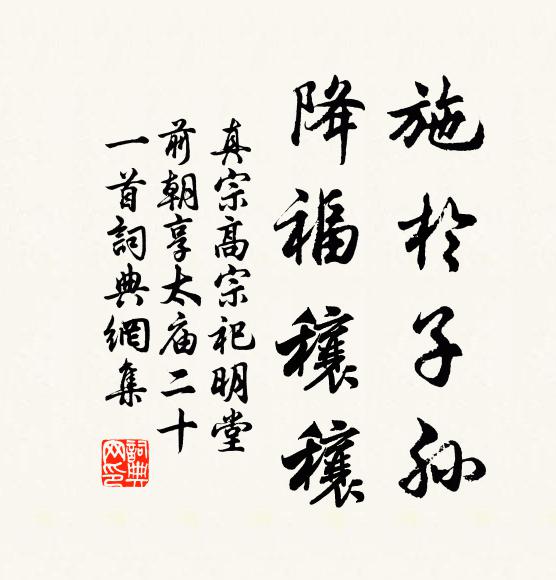 施於子孙
降福穰穰
真宗高宗祀明堂
前朝享太庙二十
一首詞典網集
詞典網印